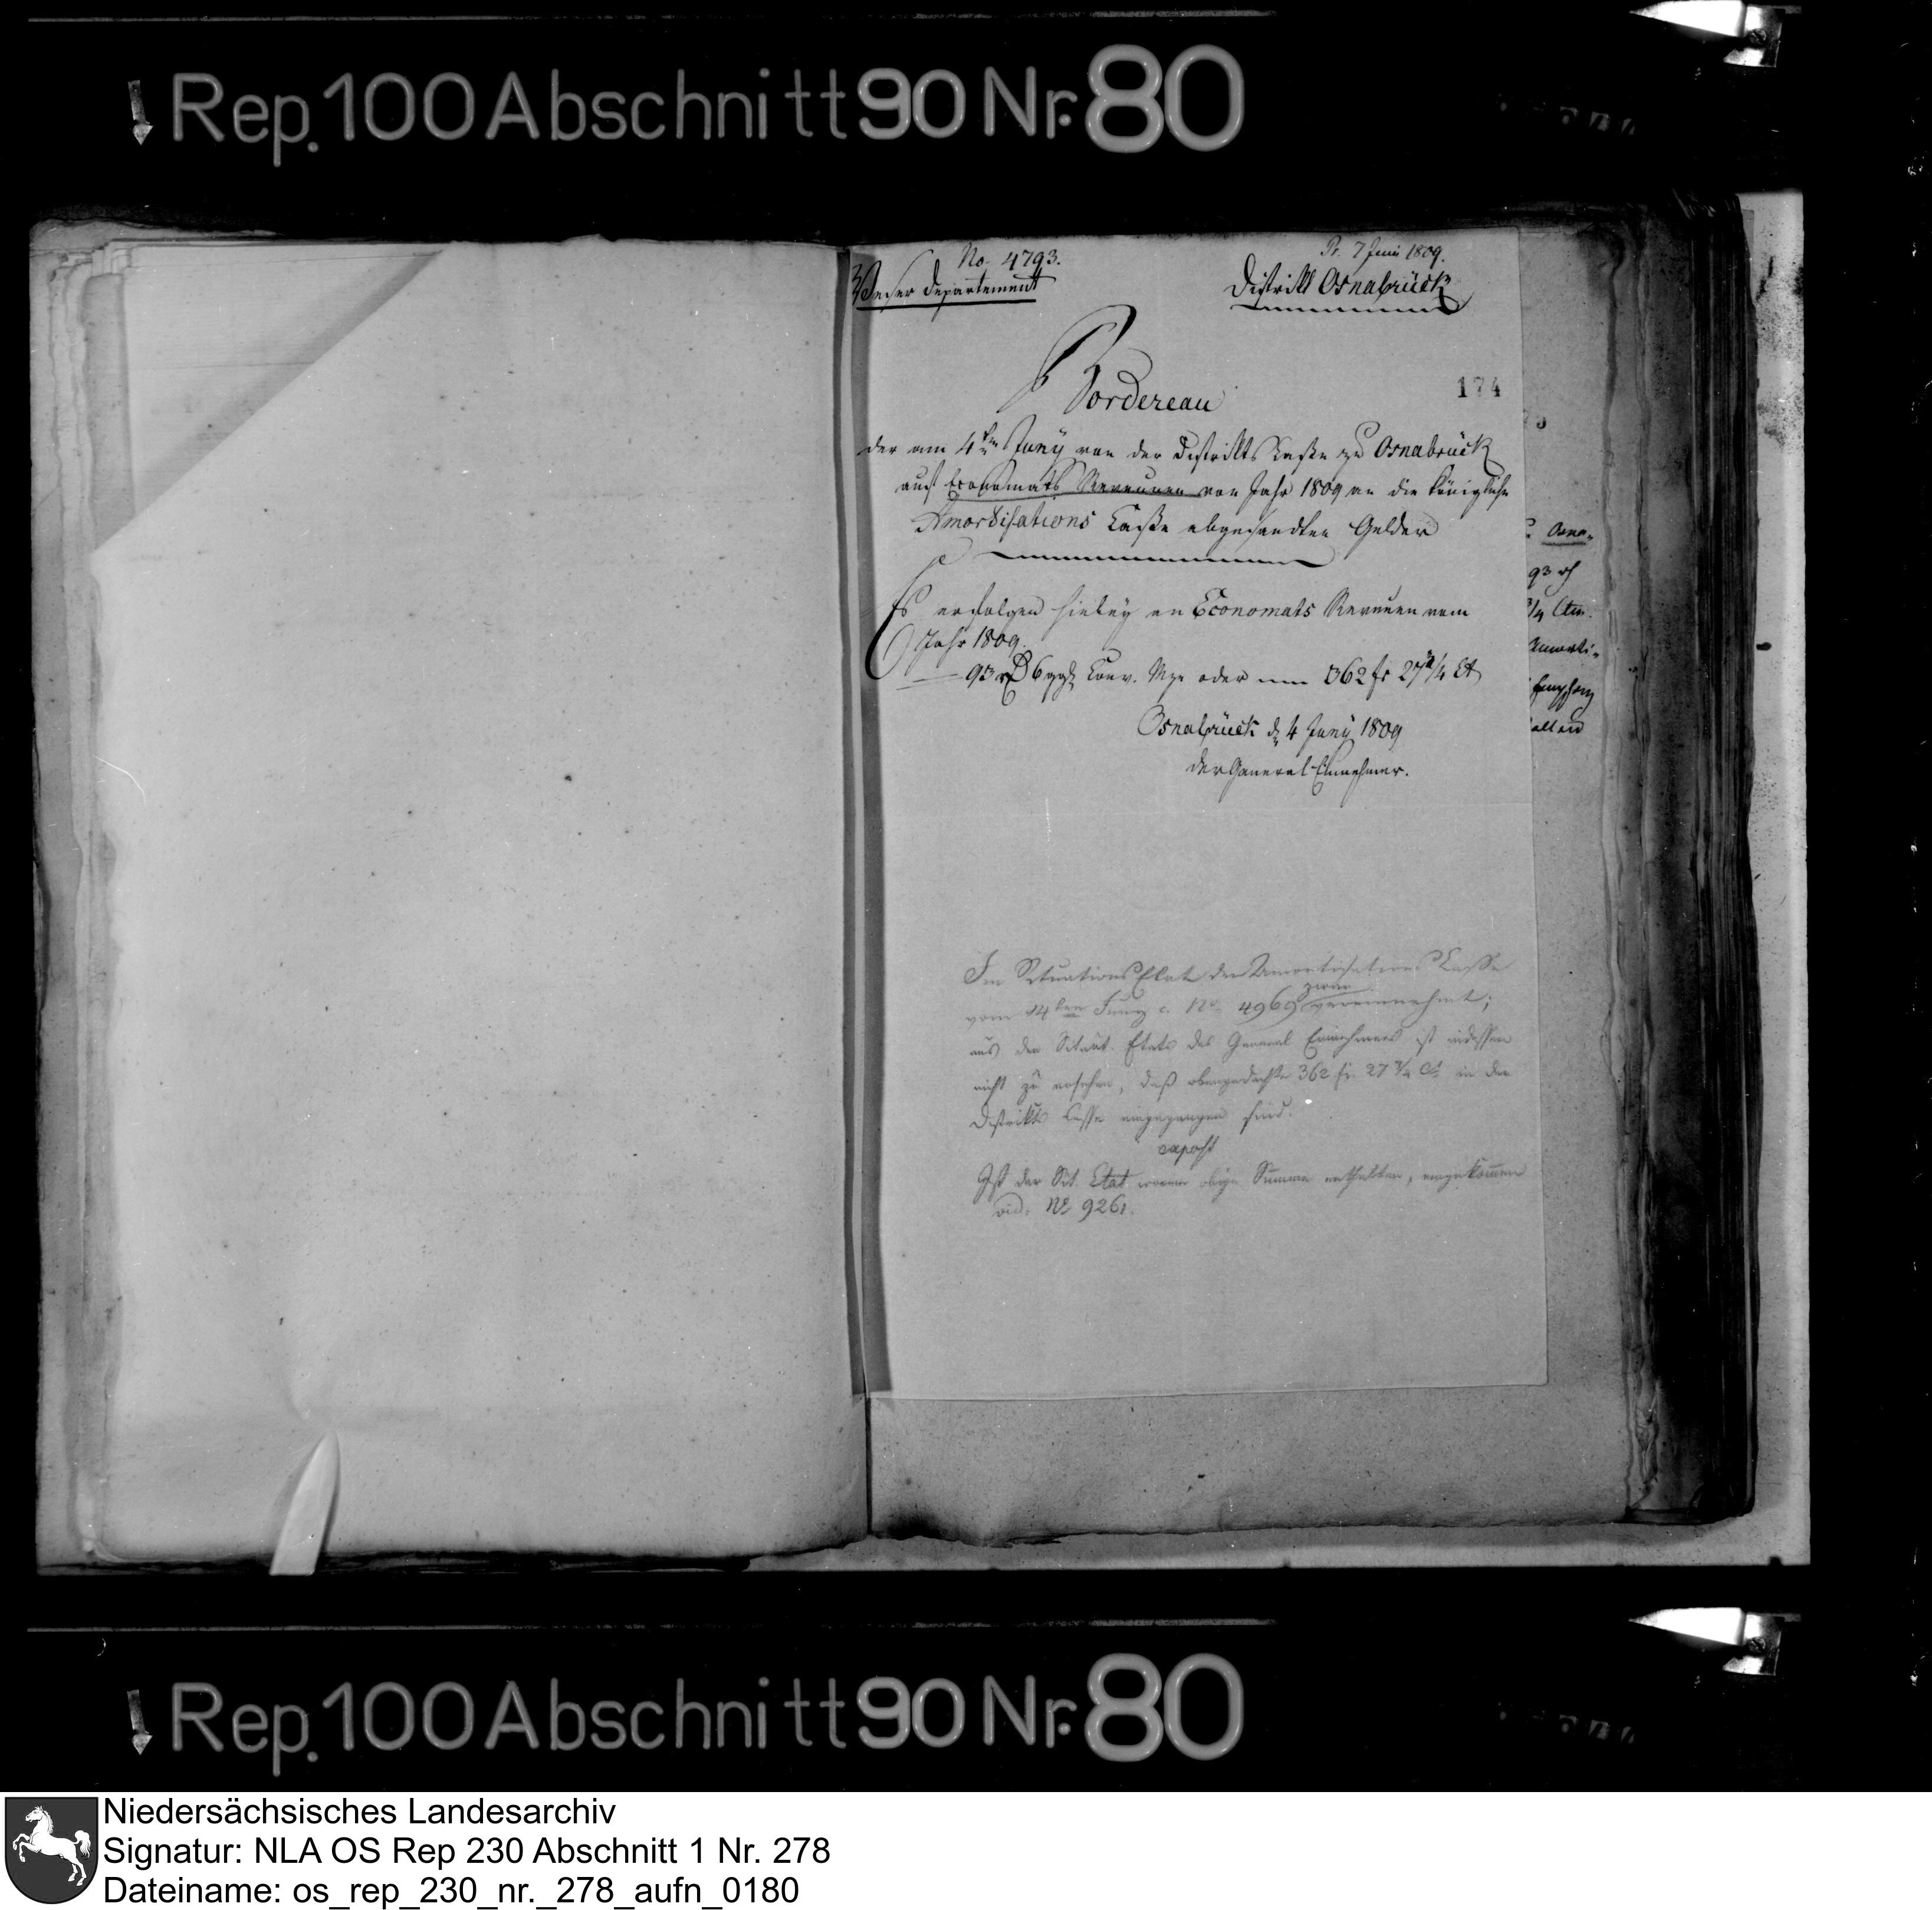 Rep. 100 Abschnitt 90 Nr. 80
No. 4793.
Pr. 7 Juni 1809.
Weser Departement
Distrikt Osnabrück
174
Bordereau
der am 4ten Juny von der Distrikts Casse zu Osnabrück
aus Economats Revenuen von Jahr 1809 an die Königliche
Amortisations Casse abgesandten Gelder
Es erfolgen hiebey an Economats Revenuen vom
Jahr 1809.
93 rD 6 ggr Conv. Mze oder 362 fr 27 3/4 Ct
Osnabrück d 4 Juny 1809
der General Einnehmer.
Osna-
93 rD
3/4 Ctm.
Amorti-
Empfang
Im Situations Etat der Amortisations Casse
zwar
vom 14ten Juny c. No. 4969 vereinnahmt;
aus den Situat. Etats des General Einnehmers ist indessen
nicht zu ersehen, daß obengedachte 362 fr. 27 3/4 Ct. in die
Distrikts Casse eingegangen sind.
expost
Ist der Sit. Etat worin obige Summe enthalten, eingekommen
vid. No 9261.
Rep. 100 Abschnitt 90 Nr. 80
Niedersächsisches Landesarchiv
Signatur: NLA OS Rep 230 Abschnitt 1 Nr. 278
Dateiname: os_rep_230_nr._278_aufn_0180